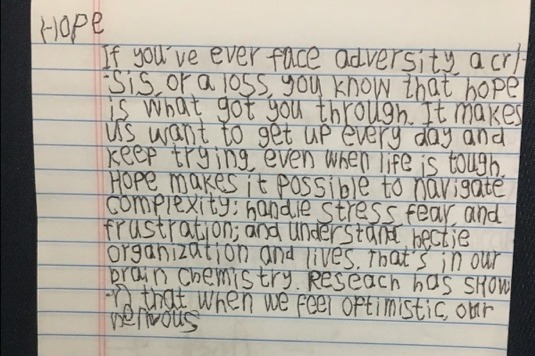 Hope
If you've ever face adversity, a cri-
-sis, or a loss, you know that hope
is what got you through. It makes
us want to get up every day and
keep trying, even when life is tough.
Hope makes it possible to navigate
complexity; handle stress, fear, and
frustration; and understand hectie
organization and lives. That's in our
brain chemistry. Reseach has show
-n that when we feel optimistic, our
nervous